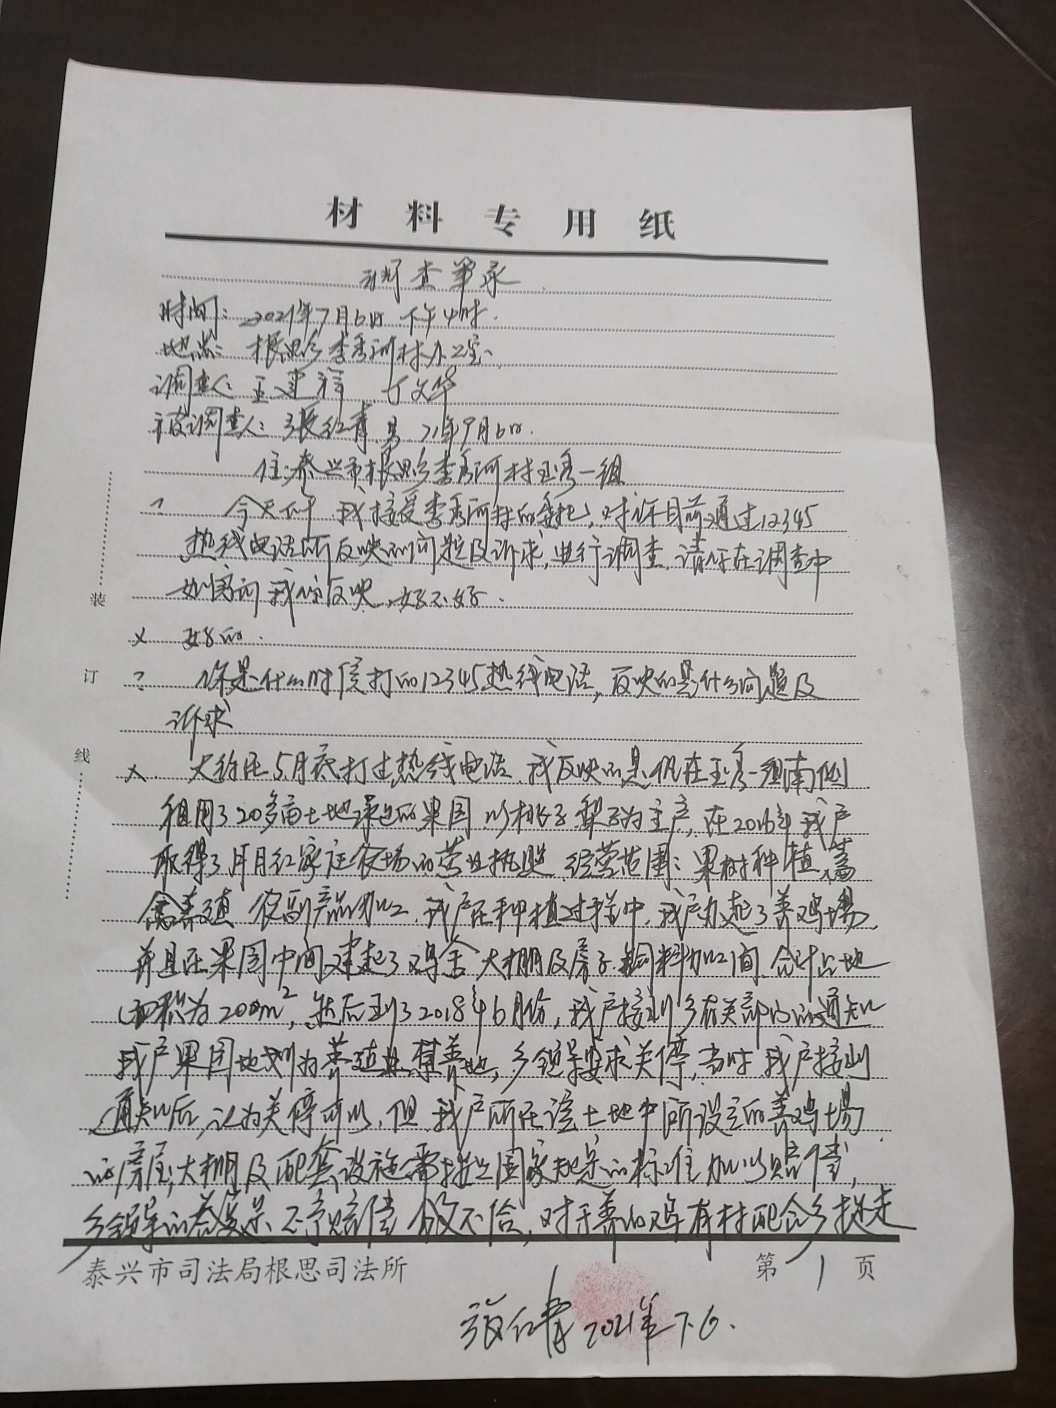 材料专用纸
调查笔录
时间：2021年7月6日 下午4时.
地点：根思乡李秀河村办公室.
调查人：王建祥 丁文华
被调查人：张红青 男 71年9月6日.
住：泰兴市根思乡李秀河村玉秀一组
? 今天下午 我接受李秀河村的委托，对你目前通过12345
热线电话所反映的问题及诉求，进行调查，请你在调查中
如实向我们反映，好不好.
× 好的.
? 你是什么时候打的12345热线电话，反映的是什么问题及
诉求
× 大约在5月底打过热线电话 我反映的是 在玉秀一组南侧
租用了20多亩土地承包的果园 以桃子 梨子为主产，在2016年我户
取得了 月红家庭农场的营业执照 经营范围：果树种植、畜
禽养殖 农副产品加工，我户在种植过程中，我户办起了养鸡场，
并且在果园中间建起了鸡舍 大棚及房子 饲料加工间 合计占地
面积为200m²，然后到了2018年6月份，我户接到乡有关部门的通知
我户果园地划为养殖业禁养地，乡领导要求关停，当时我户接到
通知以后，认为关停可以，但我户所在该土地中所设立的养鸡场
的房屋，大棚及配套设施需按照国家规定的标准加以赔偿，
乡领导的答复是 不予赔偿 分文不给，对于养的鸡有村配合乡捉走
装
订
线
泰兴市司法局根思司法所
第1页
张红青 2021年7.6.